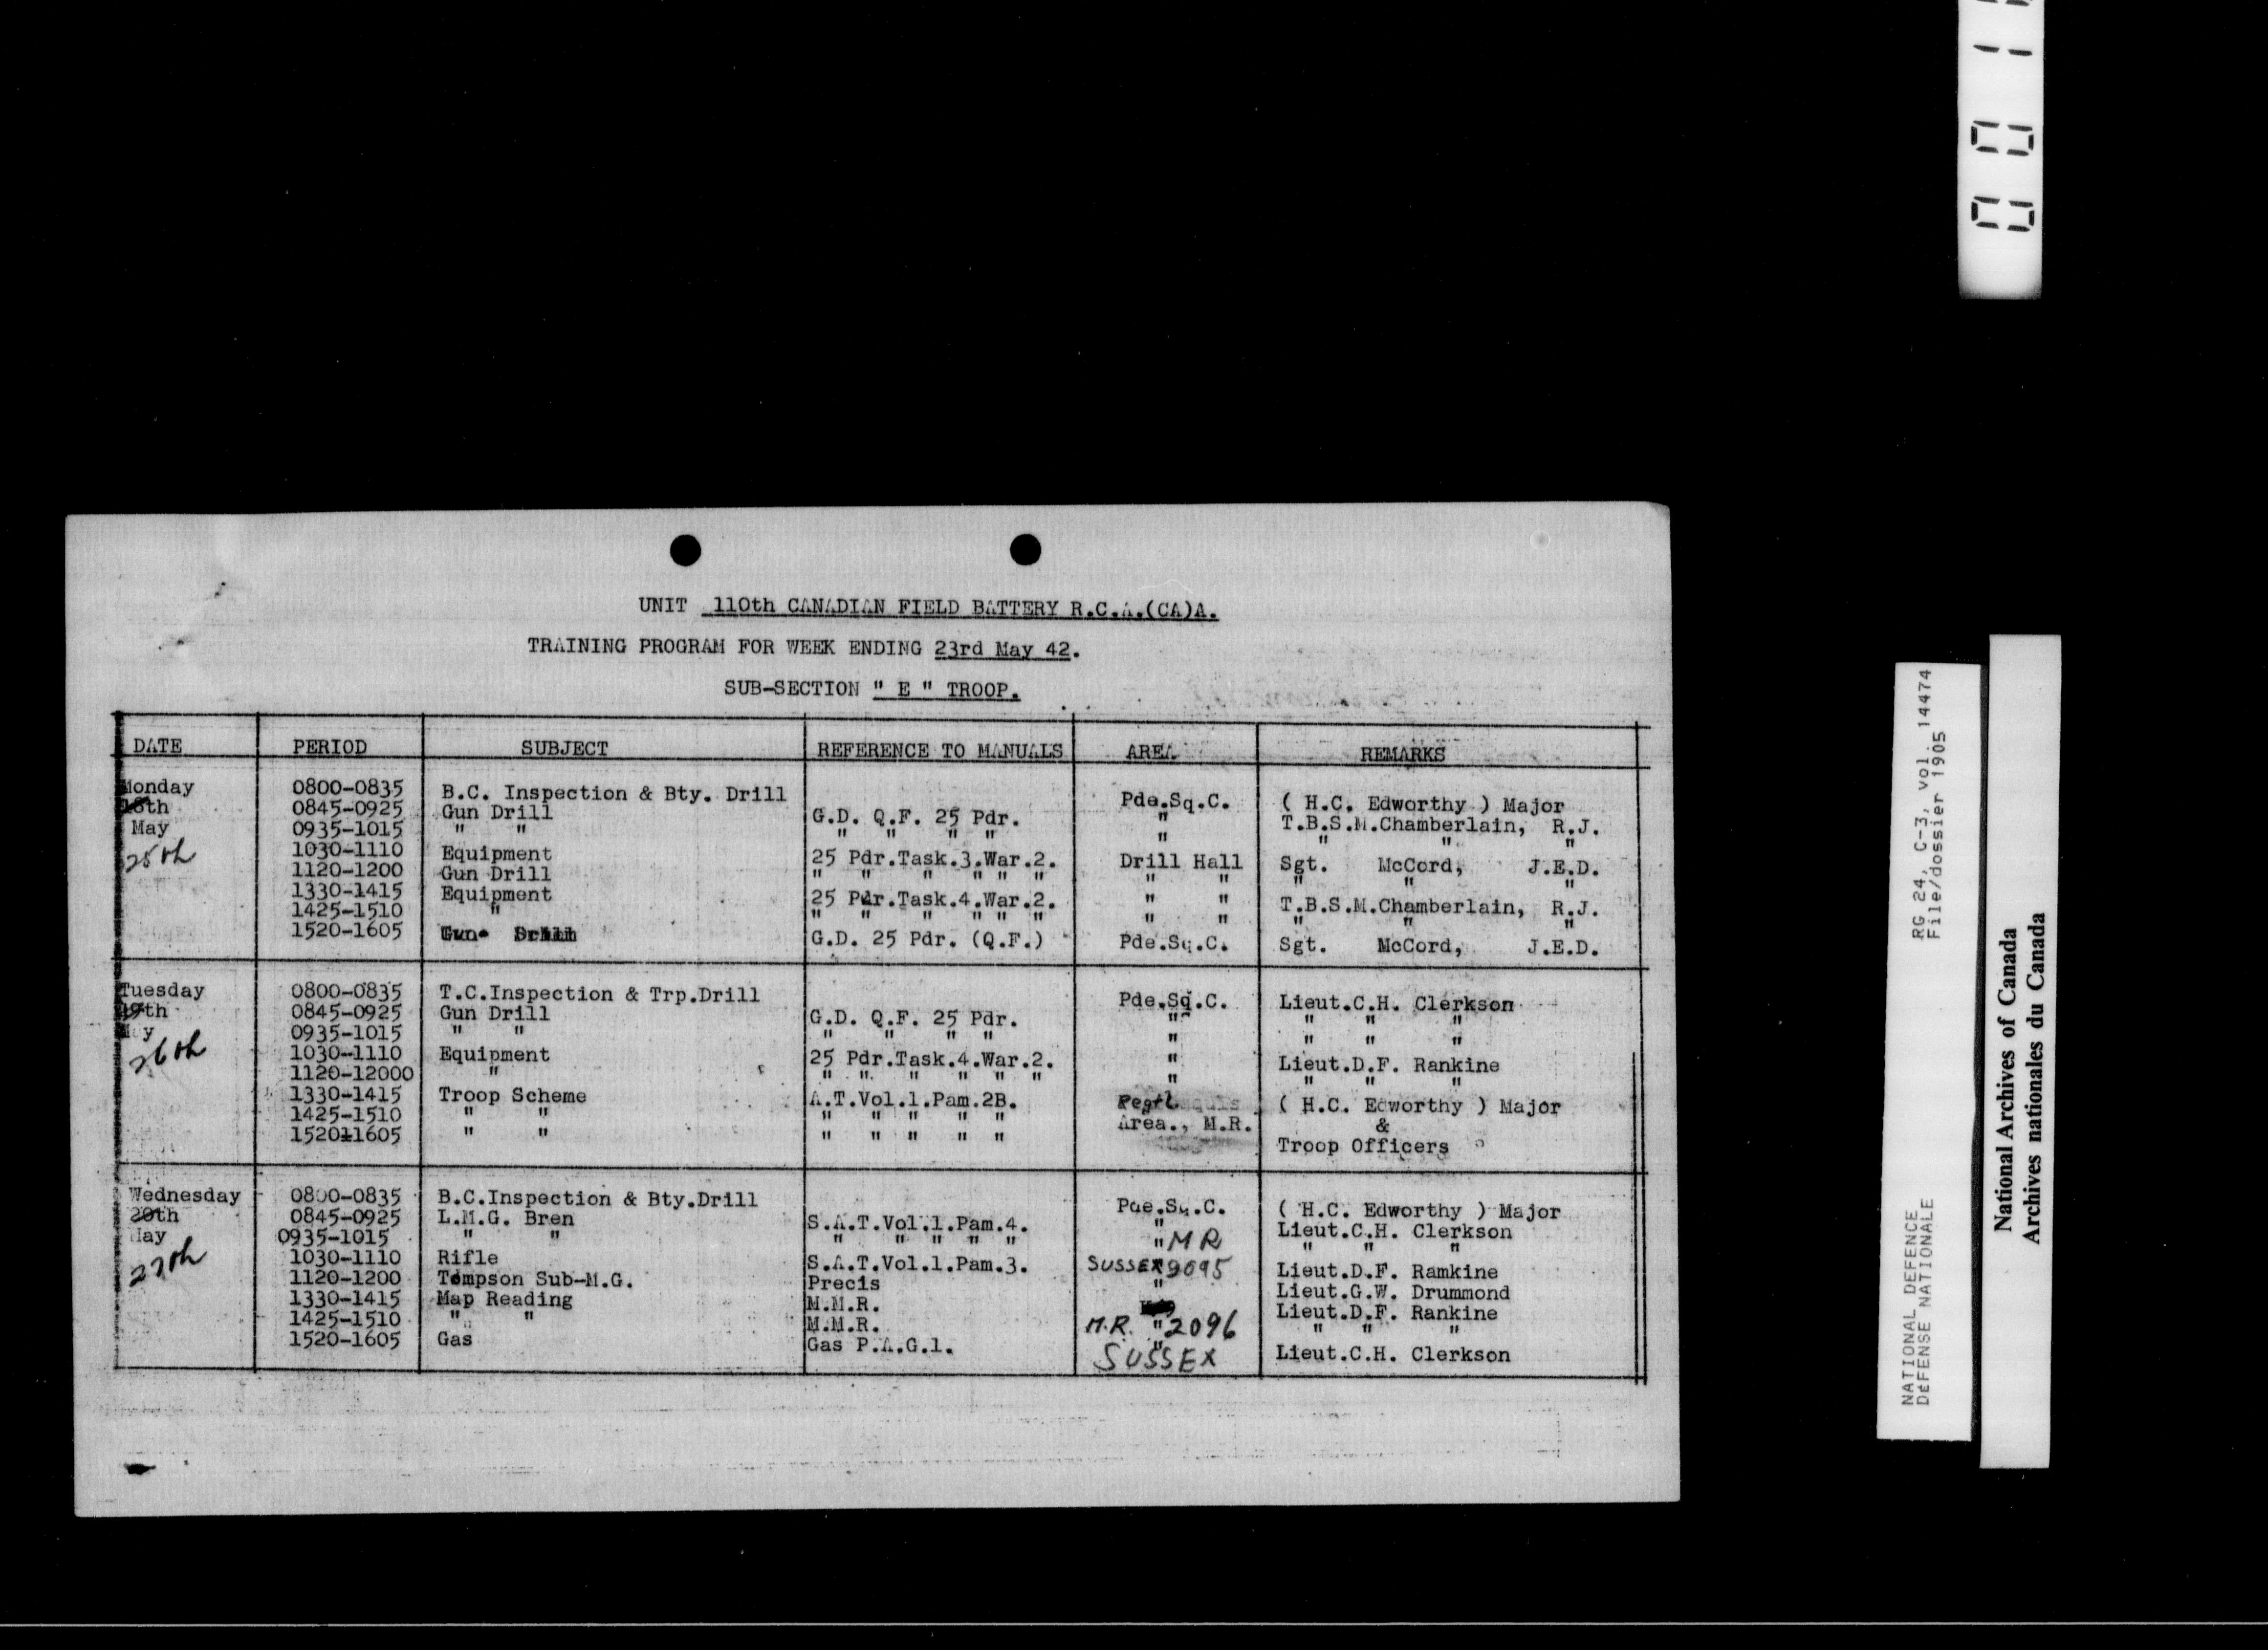 UNIT 110th CANADIAN FIELD BATTERY R.C.A.(CA)A.
TRAINING PROGRAM FOR WEEK ENDING 23rd May 42.
SUB-SECTION " E " TROOP.
DATE PERIOD SUBJECT REFERENCE TO MANUALS AREA REMARKS
Monday 0800-0835 B.C. Inspection & Bty. Drill Pde.Sq.C. ( H.C. Edworthy ) Major
18th 0845-0925 Gun Drill G.D. Q.F. 25 Pdr. " T.B.S.M.Chamberlain, R.J.
May 0935-1015 " " " " " " " " " "
25th 1030-1110 Equipment 25 Pdr.Task.3.War.2. Drill Hall Sgt. McCord, J.E.D.
1120-1200 Gun Drill " " " " " " " " " " "
1330-1415 Equipment 25 Pdr.Task.4.War.2. " " T.B.S.M.Chamberlain, R.J.
1425-1510 " " " " " " " " " " " "
1520-1605 Gun Drill G.D. 25 Pdr. (Q.F.) Pde.Sq.C. Sgt. McCord, J.E.D.
Tuesday 0800-0835 T.C.Inspection & Trp.Drill Pde.Sq.C. Lieut.C.H. Clerkson
19th 0845-0925 Gun Drill G.D. Q.F. 25 Pdr. " " " "
May 0935-1015 " " " " " " " " " "
26th 1030-1110 Equipment 25 Pdr.Task.4.War.2. " Lieut.D.F. Rankine
1120-12000 " " " " " " " " " " "
1330-1415 Troop Scheme A.T.Vol.1.Pam.2B. Regtl ( H.C. Edworthy ) Major
1425-1510 " " " " " " " Area., M.R. &
1520-1605 " " " " " " " Troop Officers
Wednesday 0800-0835 B.C.Inspection & Bty.Drill Pde.Sq.C. ( H.C. Edworthy ) Major
20th 0845-0925 L.M.G. Bren S.A.T.Vol.1.Pam.4. " Lieut.C.H. Clerkson
May 0935-1015 " " " " " " " " MR " " "
27th 1030-1110 Rifle S.A.T.Vol.1.Pam.3. SUSSEX 9095 Lieut.D.F. Ramkine
1120-1200 Tompson Sub-M.G. Precis " Lieut.G.W. Drummond
1330-1415 Map Reading M.M.R. Lieut.D.F. Rankine
1425-1510 " " M.M.R. M.R. " 2096 " " "
1520-1605 Gas Gas P.A.G.1. " SUSSEX Lieut.C.H. Clerkson
RG 24, C-3, vol. 14474
File/dossier 1905
NATIONAL DEFENCE
DÉFENSE NATIONALE
National Archives of Canada
Archives nationales du Canada